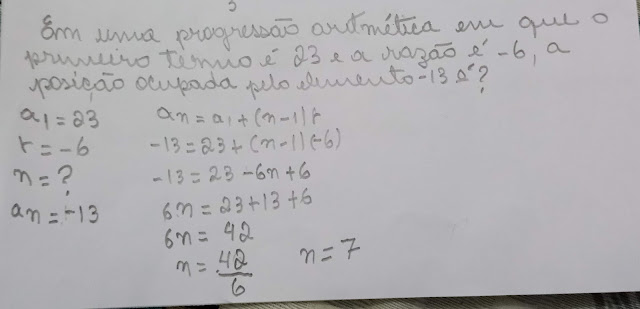 3
Em uma progressão aritmética em que o
primeiro termo é 23 e a razão é -6, a
posição ocupada pelo elemento -13 é?
a1 = 23
r = -6
n = ?
an = -13
an = a1 + (n-1)r
-13 = 23 + (n-1)(-6)
-13 = 23 - 6n + 6
6n = 23 + 13 + 6
6n = 42
n = 42
6
n = 7